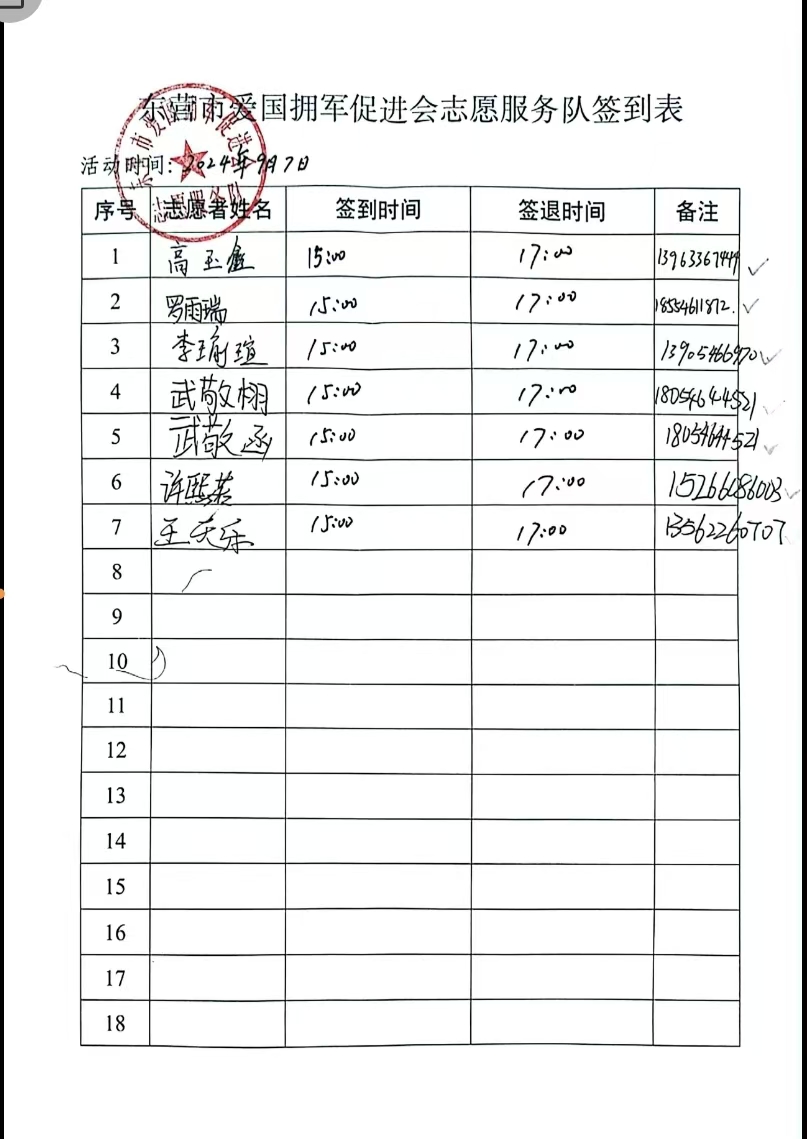 东营市爱国拥军促进会志愿服务队签到表
活动时间:2024年9月7日
序号 志愿者姓名 签到时间 签退时间 备注
1 高玉鑫 15:00 17:00 13963367449
2 罗雨瑞 15:00 17:00 18554611872.
3 李瑜瑄 15:00 17:00 13905466970
4 武敬栩 15:00 17:00 18054644521
5 武敬函 15:00 17:00 18054644521
6 许熙若 15:00 17:00 15266086003
7 王庆乐 15:00 17:00 13562260707
8
9
10
11
12
13
14
15
16
17
18
志愿服务队